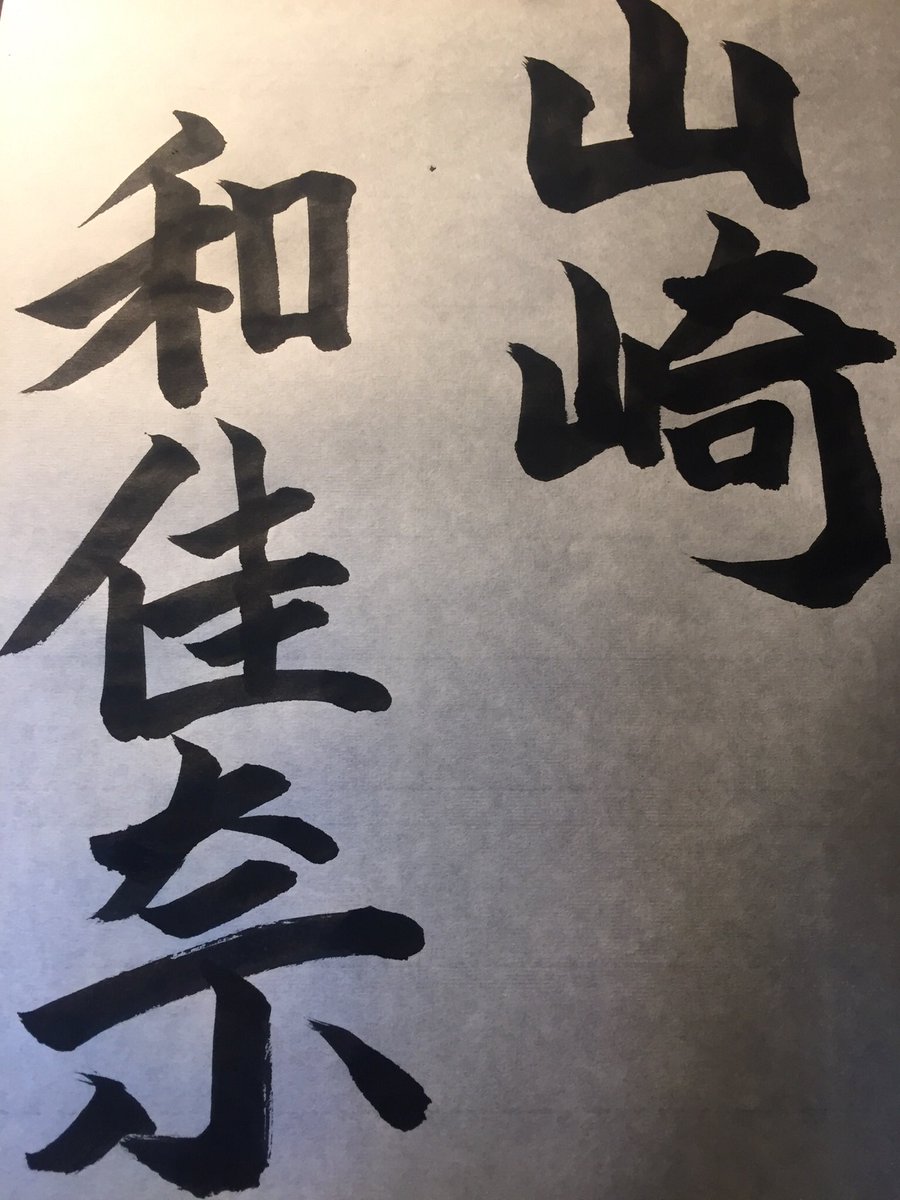 山崎
和佳奈